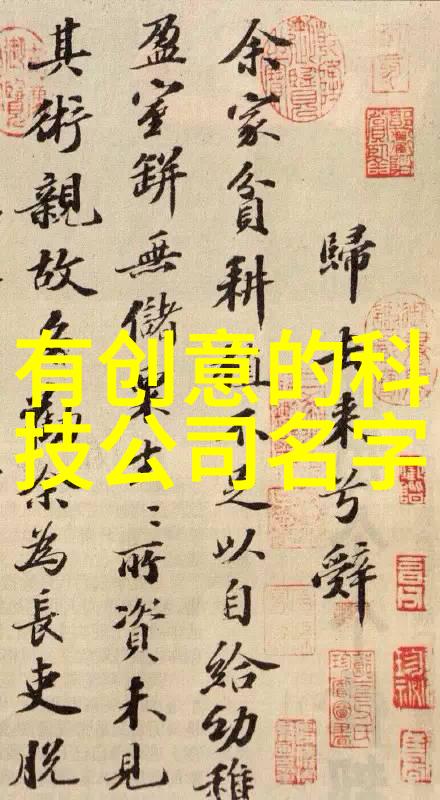 有创意的科
技公司名字
歸去来兮辭
余家貧耕植不足以自給幼稚
盈室缾無儲粟生々所資未見
其術親故多勸余為長吏脱